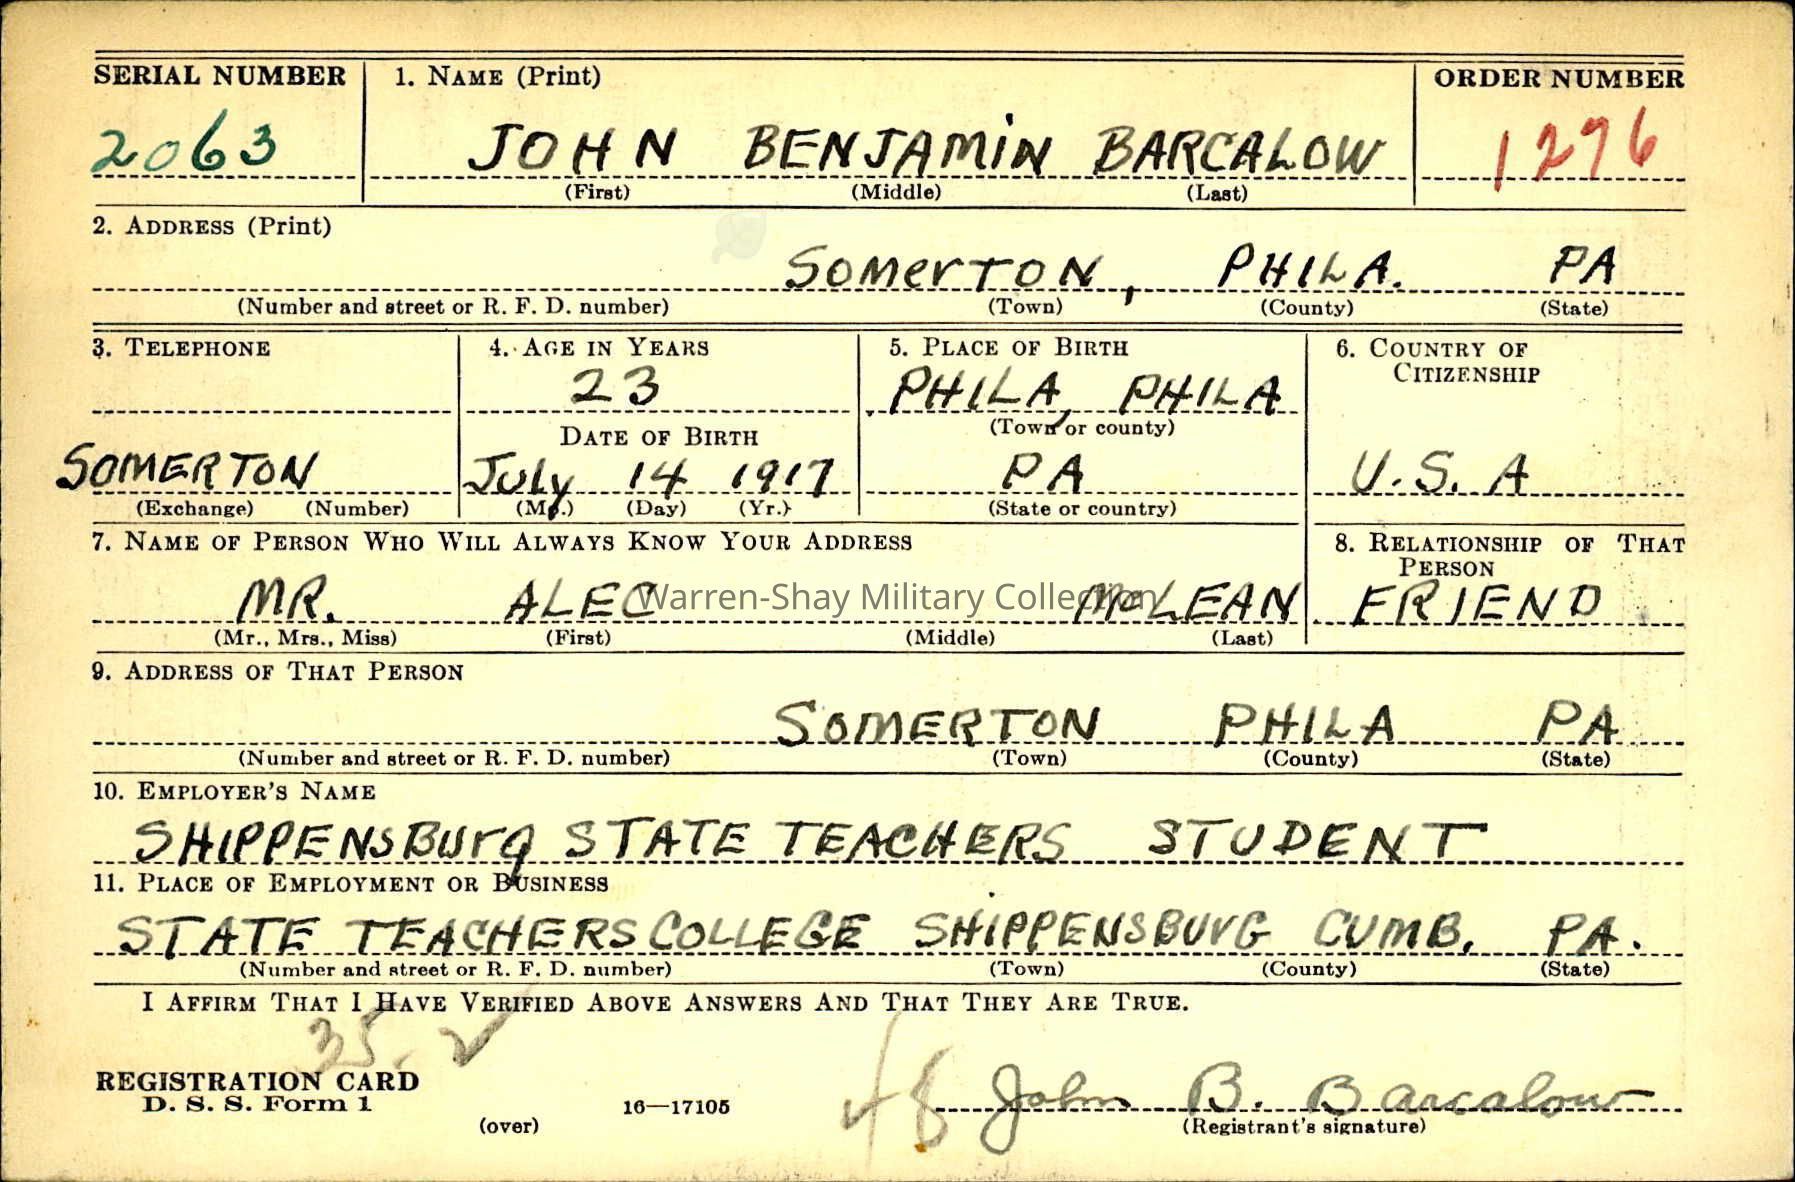 SERIAL NUMBER 1. NAME (Print) ORDER NUMBER
2063 JOHN BENJAMIN BARCALOW 1276
(First) (Middle) (Last)
2. ADDRESS (Print)
SOMERTON, PHILA. PA
(Number and street or R. F. D. number) (Town) (County) (State)
3. TELEPHONE 4. AGE IN YEARS 5. PLACE OF BIRTH 6. COUNTRY OF CITIZENSHIP
23 PHILA, PHILA
DATE OF BIRTH (Town or county)
SOMERTON July 14 1917 PA U.S.A
(Exchange) (Number) (Mo.) (Day) (Yr.) (State or country)
7. NAME OF PERSON WHO WILL ALWAYS KNOW YOUR ADDRESS 8. RELATIONSHIP OF THAT PERSON
MR. ALEC McLEAN FRIEND
Warren-Shay Military Collection
(Mr., Mrs., Miss) (First) (Middle) (Last)
9. ADDRESS OF THAT PERSON
SOMERTON PHILA PA
(Number and street or R. F. D. number) (Town) (County) (State)
10. EMPLOYER'S NAME
SHIPPENSBURg STATE TEACHERS STUDENT
11. PLACE OF EMPLOYMENT OR BUSINESS
STATE TEACHERS COLLEGE SHIPPENSBURG CUMB. PA.
(Number and street or R. F. D. number) (Town) (County) (State)
I AFFIRM THAT I HAVE VERIFIED ABOVE ANSWERS AND THAT THEY ARE TRUE.
35.
REGISTRATION CARD
D. S. S. Form 1 16—17105 48 John B. Barcalow
(over) (Registrant's signature)